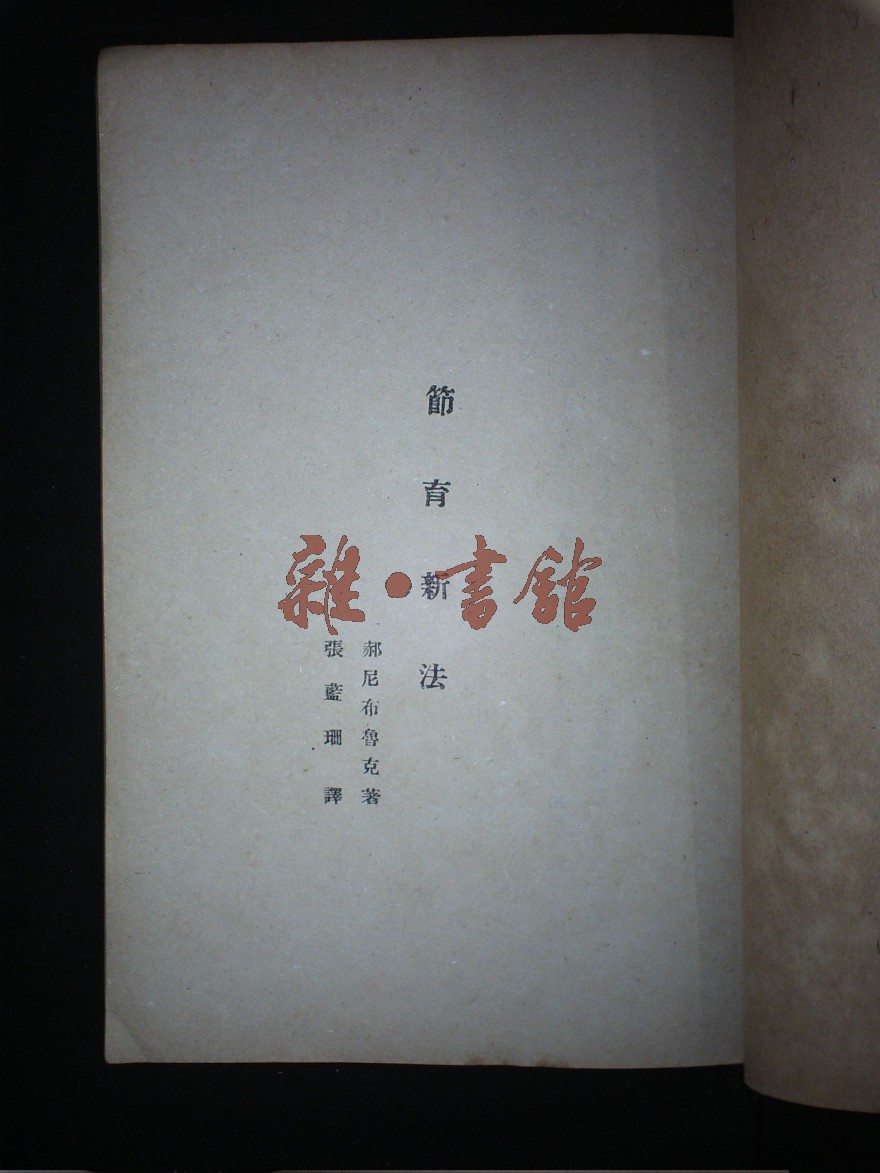 節育新法
郝尼布魯克著
張藍珊譯
雜·書館